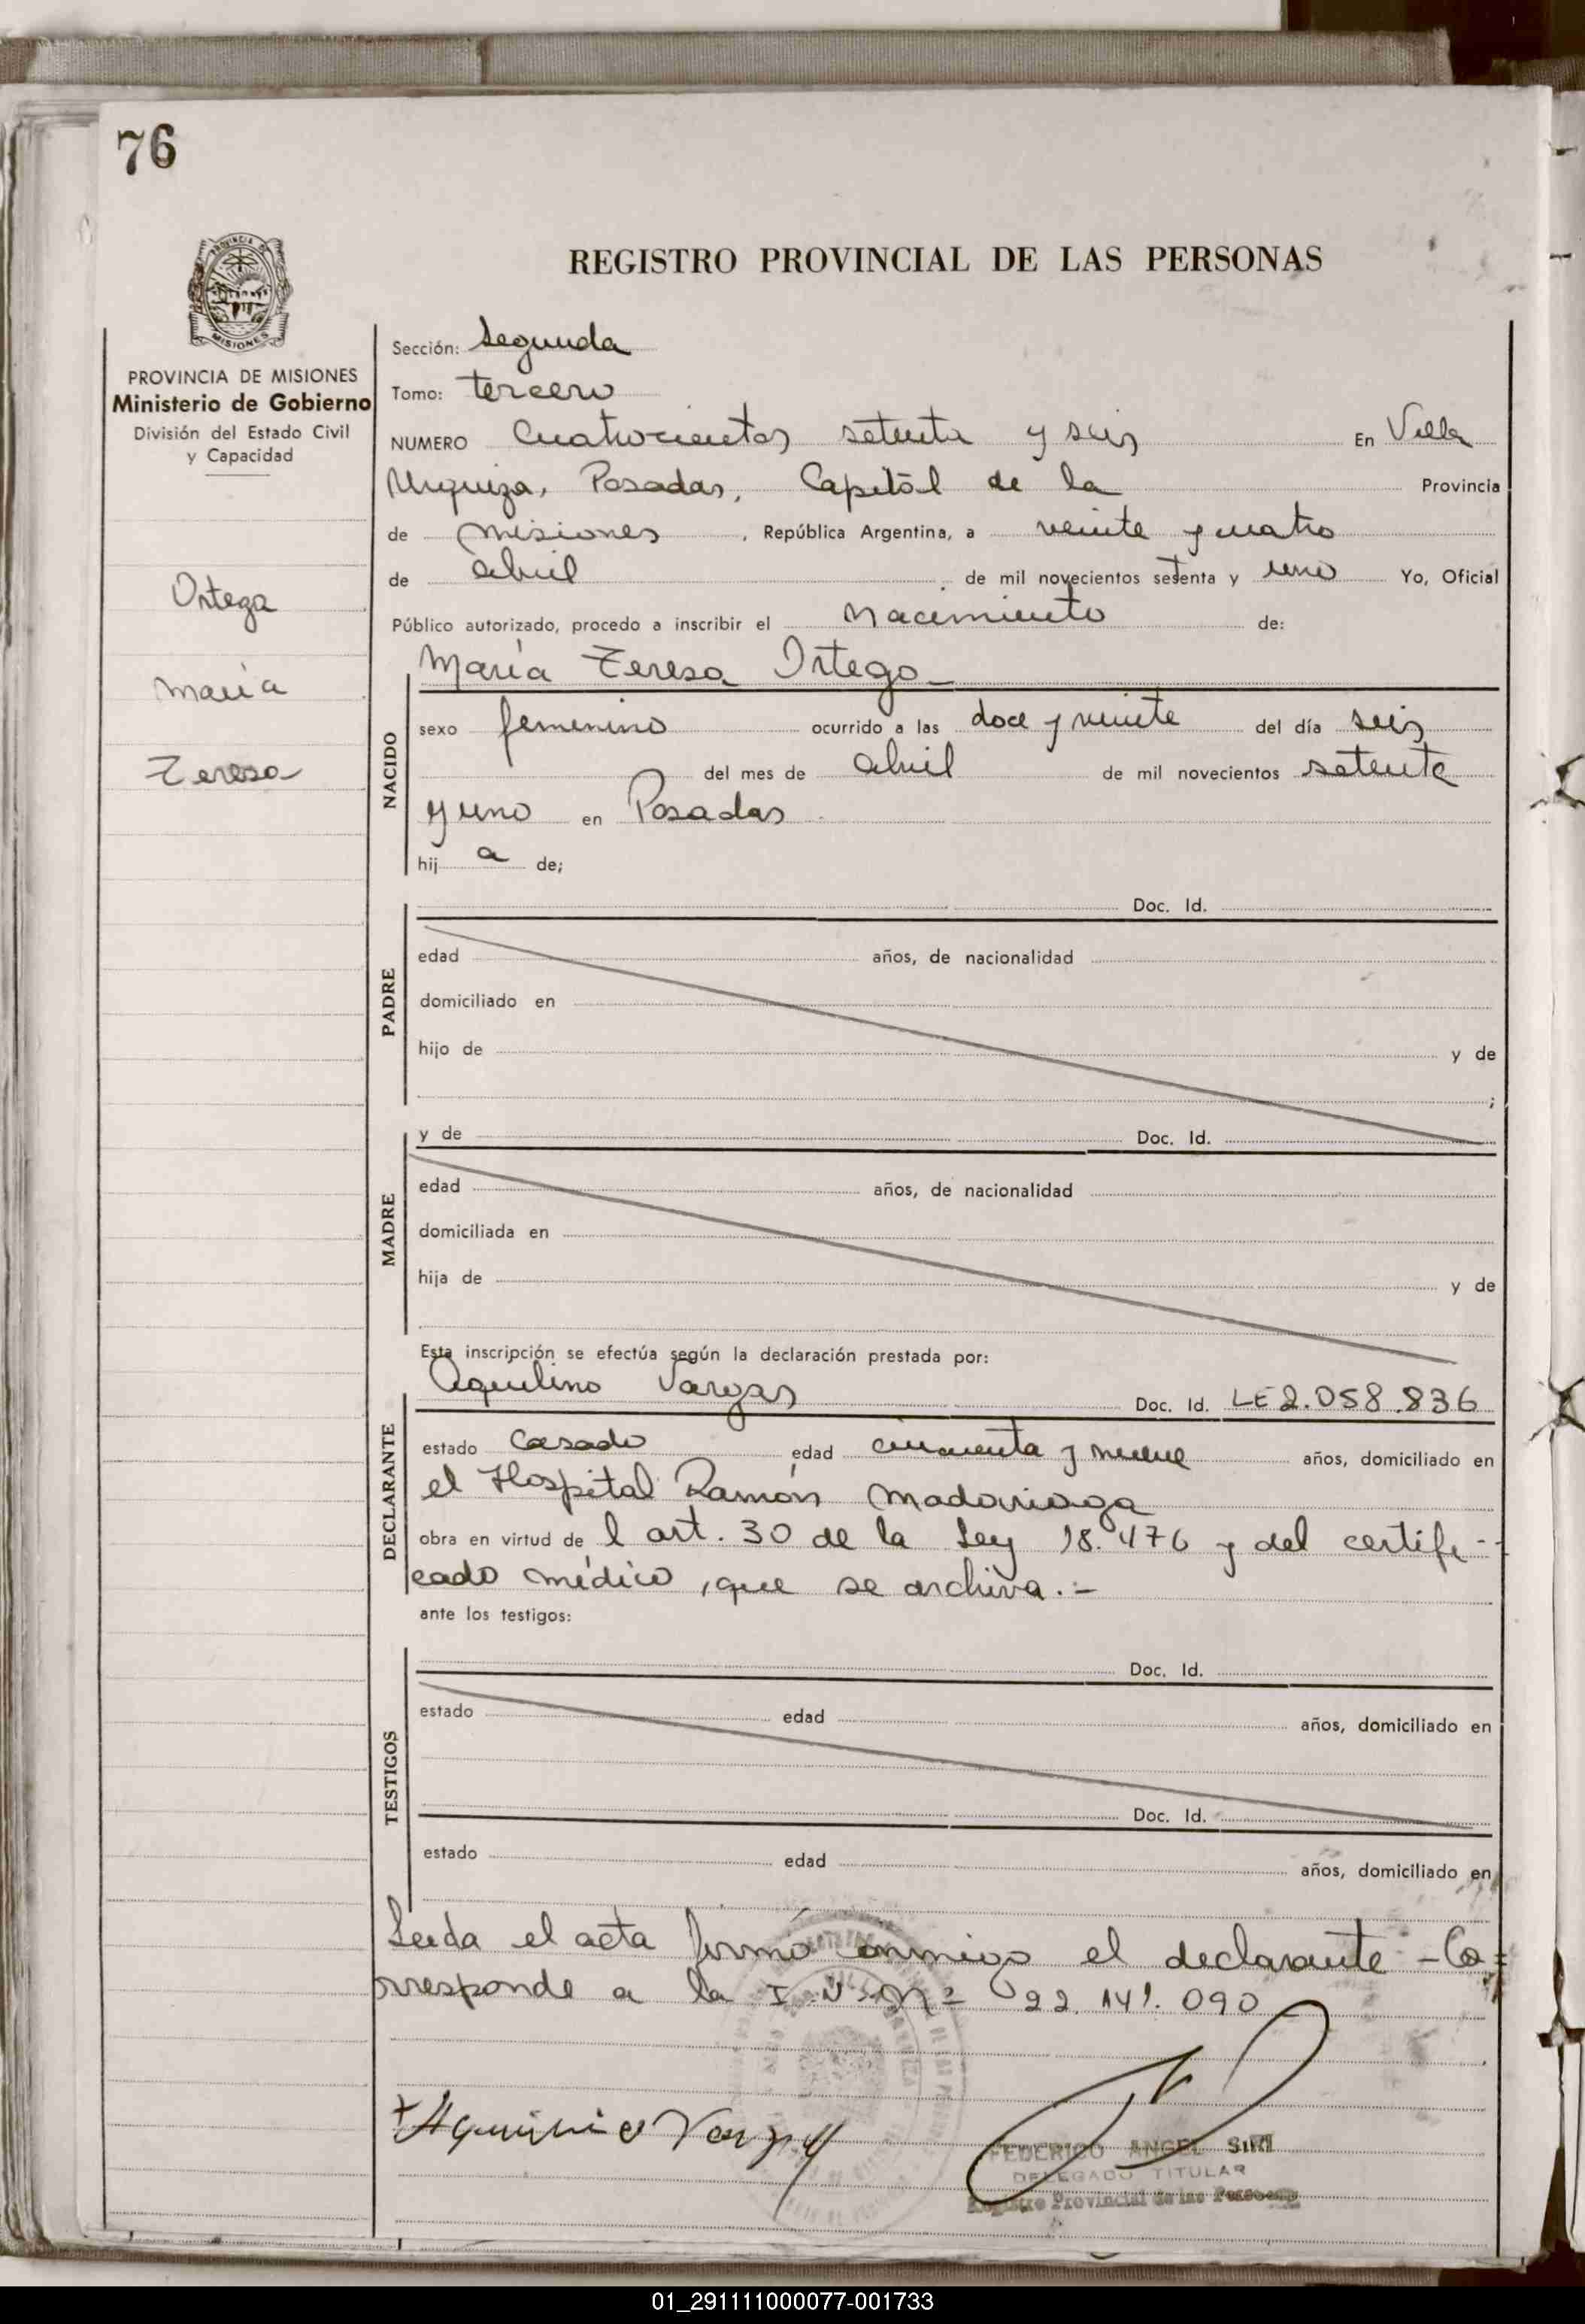 76
PROVINCIA DE MISIONES
Ministerio de Gobierno
División del Estado Civil
y Capacidad
Ortega
María
Teresa
REGISTRO PROVINCIAL DE LAS PERSONAS
Sección: Segunda
Tomo: tercero
NUMERO Cuatrocientos setenta y seis En Villa
Urquiza, Posadas, Capital de la Provincia
de Misiones, República Argentina, a veinte y cuatro
de abril de mil novecientos setenta y uno Yo, Oficial
Público autorizado, procedo a inscribir el Nacimiento de:
María Teresa Ortega
NACIDO
sexo femenino ocurrido a las doce y veinte del día seis
del mes de abril de mil novecientos setenta
y uno en Posadas
hij a de;
PADRE
Doc. Id.
edad años, de nacionalidad
domiciliado en
hijo de y de
;
MADRE
y de Doc. Id.
edad años, de nacionalidad
domiciliada en
hija de y de
Esta inscripción se efectúa según la declaración prestada por:
DECLARANTE
Aquilino Vargas Doc. Id. LE 2.058.836
estado Casado edad cincuenta y nueve años, domiciliado en
el Hospital Ramón Madariaga
obra en virtud de l art. 30 de la Ley 18.476 y del certifi-
cado médico, que se archiva.-
ante los testigos:
TESTIGOS
Doc. Id.
estado edad años, domiciliado en
Doc. Id.
estado edad años, domiciliado en
Leida el acta firmó conmigo el declarante - Co=
rresponde a la I.N. Nº 22.141.090
Aquilino Vargas
FEDERICO ANGEL SIRI
DELEGADO TITULAR
Registro Provincial de las Personas
01_291111000077-001733